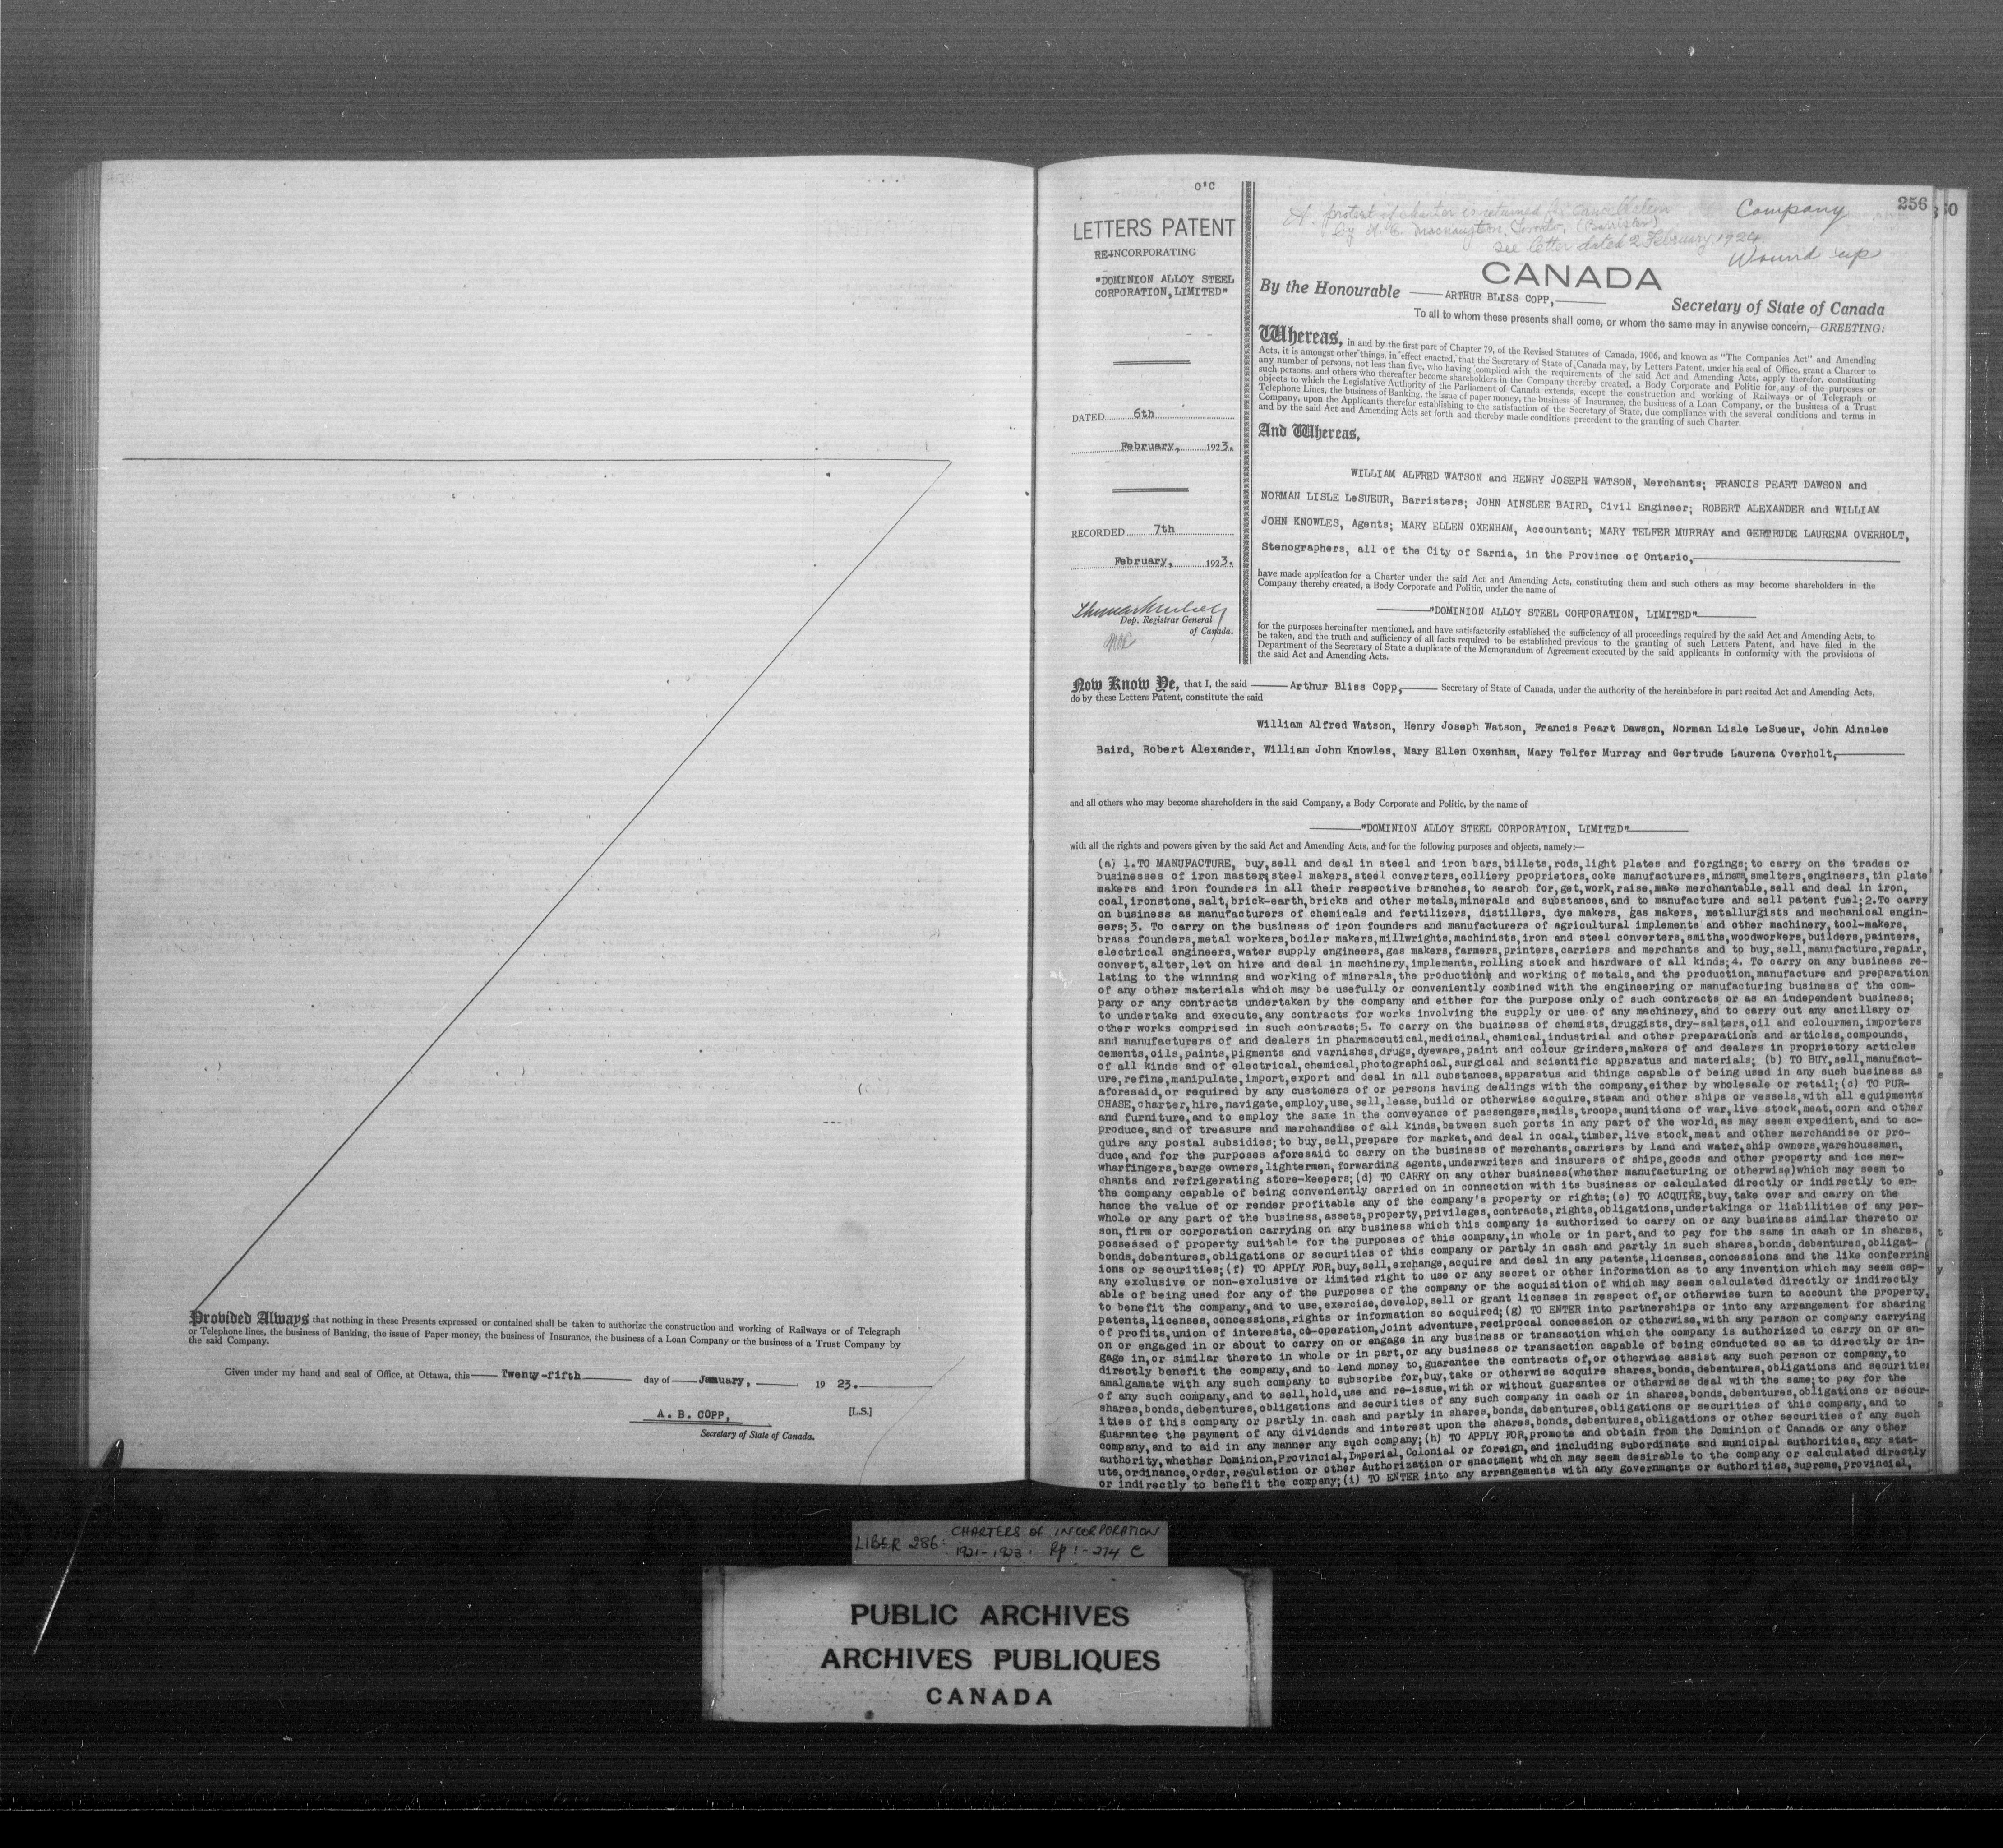 Provided Always that nothing in these Presents expressed or contained shall be taken to authorize the construction and working of Railways or of Telegraph
or Telephone lines, the business of Banking, the issue of Paper money, the business of Insurance, the business of a Loan Company or the business of a Trust Company by
the said Company.
Given under my hand and seal of Office, at Ottawa, this Twenty-fifth day of January, 19 23.
A. B. COPP, [L.S.]
Secretary of State of Canada.
O'C
LETTERS PATENT
RE-INCORPORATING
"DOMINION ALLOY STEEL
CORPORATION, LIMITED"
DATED 6th
February, 1923.
RECORDED 7th
February, 1923.
Dep. Registrar General
of Canada.
256
A. protest if charter is returned for cancellation
by
see letter dated 2 February, 1924.
Company
Wound up
CANADA
By the Honourable ARTHUR BLISS COPP, Secretary of State of Canada
To all to whom these presents shall come, or whom the same may in anywise concern,—GREETING:
Whereas, in and by the first part of Chapter 79, of the Revised Statutes of Canada, 1906, and known as "The Companies Act" and Amending
Acts, it is amongst other things, in effect enacted, that the Secretary of State of Canada may, by Letters Patent, under his seal of Office, grant a Charter to
any number of persons, not less than five, who having complied with the requirements of the said Act and Amending Acts, apply therefor, constituting
such persons, and others who thereafter become shareholders in the Company thereby created, a Body Corporate and Politic for any of the purposes or
objects to which the Legislative Authority of the Parliament of Canada extends, except the construction and working of Railways or of Telegraph or
Telephone Lines, the business of Banking, the issue of paper money, the business of Insurance, the business of a Loan Company, or the business of a Trust
Company, upon the Applicants therefor establishing to the satisfaction of the Secretary of State, due compliance with the several conditions and terms in
and by the said Act and Amending Acts set forth and thereby made conditions precedent to the granting of such Charter.
And Whereas,
WILLIAM ALFRED WATSON and HENRY JOSEPH WATSON, Merchants; FRANCIS PEART DAWSON and
NORMAN LISLE LeSUEUR, Barristers; JOHN AINSLEE BAIRD, Civil Engineer; ROBERT ALEXANDER and WILLIAM
JOHN KNOWLES, Agents; MARY ELLEN OXENHAM, Accountant; MARY TELFER MURRAY and GERTRUDE LAURENA OVERHOLT,
Stenographers, all of the City of Sarnia, in the Province of Ontario,
have made application for a Charter under the said Act and Amending Acts, constituting them and such others as may become shareholders in the
Company thereby created, a Body Corporate and Politic, under the name of
"DOMINION ALLOY STEEL CORPORATION, LIMITED"
for the purposes hereinafter mentioned, and have satisfactorily established the sufficiency of all proceedings required by the said Act and Amending Acts, to
be taken, and the truth and sufficiency of all facts required to be established previous to the granting of such Letters Patent, and have filed in the
Department of the Secretary of State a duplicate of the Memorandum of Agreement executed by the said applicants in conformity with the provisions of
the said Act and Amending Acts.
Now Know Ye, that I, the said Arthur Bliss Copp, Secretary of State of Canada, under the authority of the hereinbefore in part recited Act and Amending Acts,
do by these Letters Patent, constitute the said
William Alfred Watson, Henry Joseph Watson, Francis Peart Dawson, Norman Lisle LeSueur, John Ainslee
Baird, Robert Alexander, William John Knowles, Mary Ellen Oxenham, Mary Telfer Murray and Gertrude Laurena Overholt,
and all others who may become shareholders in the said Company, a Body Corporate and Politic, by the name of
"DOMINION ALLOY STEEL CORPORATION, LIMITED"
with all the rights and powers given by the said Act and Amending Acts, and for the following purposes and objects, namely:—
(a) 1.TO MANUFACTURE, buy,sell and deal in steel and iron bars,billets,rods,light plates and forgings; to carry on the trades or
businesses of iron masters,steel makers,steel converters,colliery proprietors,coke manufacturers,miners,smelters,engineers,tin plate
makers and iron founders in all their respective branches,to search for,get,work,raise,make merchantable,sell and deal in iron,
coal,ironstone,salt,brick-earth,bricks and other metals,minerals and substances,and to manufacture and sell patent fuel;2.To carry
on business as manufacturers of chemicals and fertilizers, distillers, dye makers, gas makers, metallurgists and mechanical engin-
eers;3. To carry on the business of iron founders and manufacturers of agricultural implements and other machinery,tool-makers,
brass founders,metal workers,boiler makers,millwrights,machinists,iron and steel converters,smiths,woodworkers,builders,painters,
electrical engineers,water supply engineers,gas makers,farmers,printers,carriers and merchants and to buy,sell,manufacture,repair,
convert,alter,let on hire and deal in machinery,implements,rolling stock and hardware of all kinds;4. To carry on any business re-
lating to the winning and working of minerals,the production and working of metals,and the production,manufacture and preparation
of any other materials which may be usefully or conveniently combined with the engineering or manufacturing business of the com-
pany or any contracts undertaken by the company and either for the purpose only of such contracts or as an independent business;
to undertake and execute,any contracts for works involving the supply or use of any machinery,and to carry out any ancillary or
other works comprised in such contracts;5. To carry on the business of chemists,druggists,dry-salters,oil and colourmen,importers
and manufacturers of and dealers in pharmaceutical,medicinal,chemical,industrial and other preparations and articles,compounds,
cements,oils,paints,pigments and varnishes,drugs,dyeware,paint and colour grinders,makers of and dealers in proprietory articles
of all kinds and of electrical,chemical,photographical,surgical and scientific apparatus and materials; (b) TO BUY,sell,manufact-
ure,refine,manipulate,import,export and deal in all substances,apparatus and things capable of being used in any such business as
aforesaid,or required by any customers of or persons having dealings with the company,either by wholesale or retail;(c) TO PUR-
CHASE,charter,hire,navigate,employ,use,sell,lease,build or otherwise acquire,steam and other ships or vessels,with all equipments
and furniture,and to employ the same in the conveyance of passengers,mails,troops,munitions of war,live stock,meat,corn and other
produce,and of treasure and merchandise of all kinds,between such ports in any part of the world,as may seem expedient,and to ac-
quire any postal subsidies;to buy,sell,prepare for market,and deal in coal,timber,live stock,meat and other merchandise or pro-
duce,and for the purposes aforesaid to carry on the business of merchants,carriers by land and water,ship owners,warehousemen,
wharfingers,barge owners,lightermen,forwarding agents,underwriters and insurers of ships,goods and other property and ice mer-
chants and refrigerating store-keepers;(d) TO CARRY on any other business(whether manufacturing or otherwise)which may seem to
the company capable of being conveniently carried on in connection with its business or calculated directly or indirectly to en-
hance the value of or render profitable any of the company's property or rights;(e) TO ACQUIRE,buy,take over and carry on the
whole or any part of the business,assets,property,privileges,contracts,rights,obligations,undertakings or liabilities of any per-
son,firm or corporation carrying on any business which this company is authorized to carry on or any business similar thereto or
possessed of property suitable for the purposes of this company,in whole or in part,and to pay for the same in cash or in shares,
bonds,debentures,obligations or securities of this company or partly in cash and partly in such shares,bonds,debentures,obligat-
ions or securities;(f) TO APPLY FOR,buy,sell,exchange,acquire and deal in any patents,licenses,concessions and the like conferring
any exclusive or non-exclusive or limited right to use or any secret or other information as to any invention which may seem cap-
able of being used for any of the purposes of the company or the acquisition of which may seem calculated directly or indirectly
to benefit the company,and to use,exercise,develop,sell or grant licenses in respect of,or otherwise turn to account the property,
patents,licenses,concessions,rights or information so acquired;(g) TO ENTER into partnerships or into any arrangement for sharing
of profits,union of interests,co-operation,joint adventure,reciprocal concession or otherwise,with any person or company carrying
on or engaged in or about to carry on or engage in any business or transaction which the company is authorized to carry on or en-
gage in,or similar thereto in whole or in part,or any business or transaction capable of being conducted so as to directly or in-
directly benefit the company,and to lend money to,guarantee the contracts of,or otherwise assist any such person or company,to
amalgamate with any such company to subscribe for,buy,take or otherwise acquire shares,bonds,debentures,obligations and securities
of any such company,and to sell,hold,use and re-issue,with or without guarantee or otherwise deal with the same;to pay for the
shares,bonds,debentures,obligations and securities of any such company in cash or in shares,bonds,debentures,obligations or secur-
ities of this company or partly in cash and partly in shares,bonds,debentures,obligations or securities of this company,and to
guarantee the payment of any dividends and interest upon the shares,bonds,debentures,obligations or other securities of any such
company,and to aid in any manner any such company;(h) TO APPLY FOR,promote and obtain from the Dominion of Canada or any other
authority,whether Dominion,Provincial,Imperial,Colonial or foreign,and including subordinate and municipal authorities,any stat-
ute,ordinance,order,regulation or other Authorization or enactment which may seem desirable to the company or calculated directly
or indirectly to benefit the company;(i) TO ENTER into any arrangements with any governments or authorities,supreme,provincial,
LIBER 286: CHARTERS OF INCORPORATION
1921-1923. Pp 1-274 C
PUBLIC ARCHIVES
ARCHIVES PUBLIQUES
CANADA